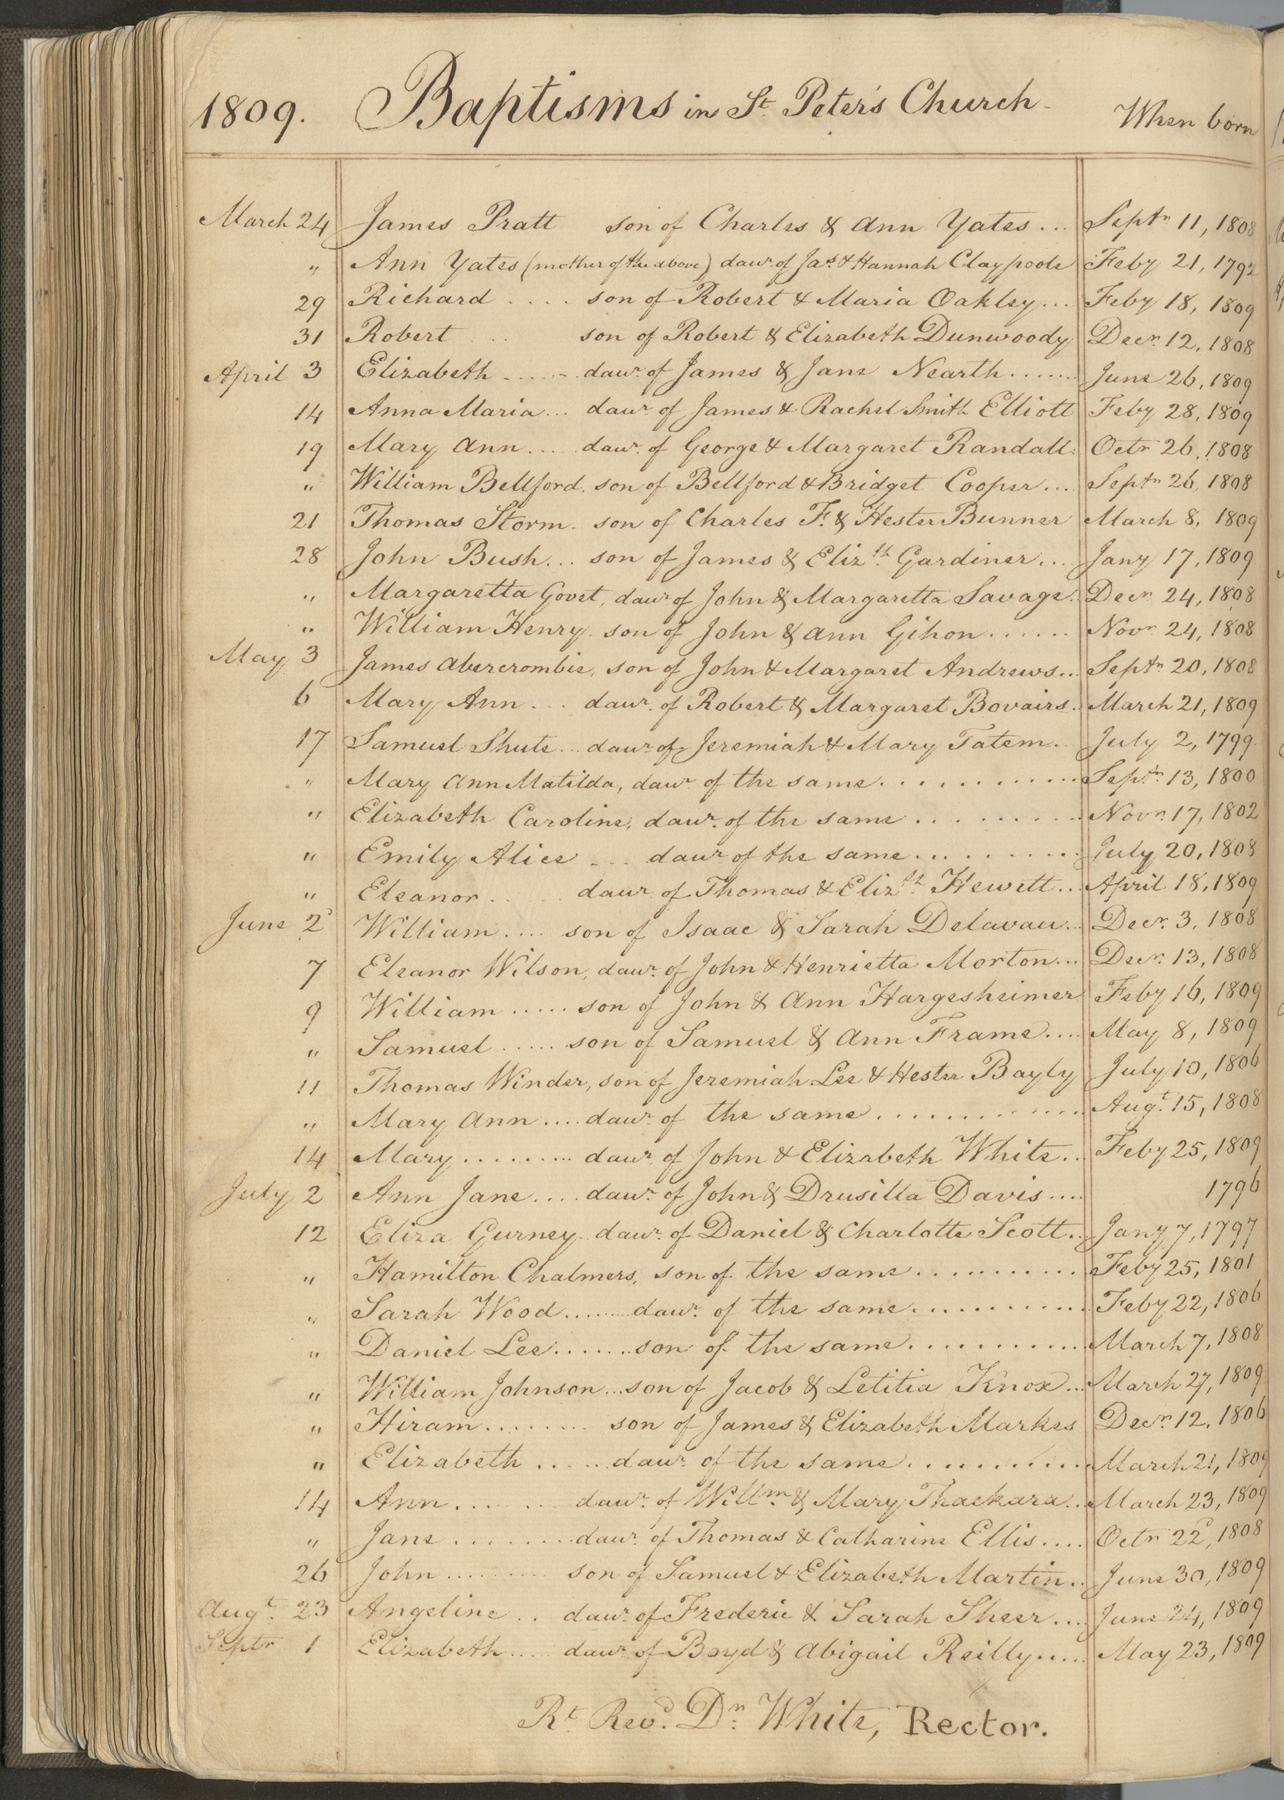 1809. Baptisms in St. Peter's Church - When born
March 24 James Pratt son of Charles & Ann Yates ... Septr. 11, 1808
" Ann Yates (mother of the above) daur. of Jas. & Hannah Claypoole Feby 21, 1792
29 Richard .... son of Robert & Maria Oakley ... Feby 18, 1809
31 Robert .. son of Robert & Elizabeth Dunwoody Decr. 12, 1808
April 3 Elizabeth ..... daur. of James & Jane Nearth ...... June 26, 1809
14 Anna Maria ... daur. of James & Rachel Smith Elliott Feby 28, 1809
19 Mary Ann .... daur. of George & Margaret Randall. Octr 26, 1808
" William Bellford. son of Bellford & Bridget Cooper ... Septr. 26, 1808
21 Thomas Storm. son of Charles F. & Hester Bunner March 8, 1809
28 John Bush... son of James & Elizth. Gardiner .... Jany 17, 1809
" Margaretta Govet, daur of John & Margaretta Savage. Decr 24, 1808
" William Henry. son of John & Ann Gihon ...... Novr 24, 1808
May 3 James Abercrombie, son of John & Margaret Andrews... Septr. 20, 1808
6 Mary Ann ... daur. of Robert & Margaret Bovairs. March 21, 1809
17 Samuel Shute ... daur. of Jeremiah & Mary Tatem. July 2, 1799
" Mary Ann Matilda, daur. of the same ........... Septr. 13, 1800
" Elizabeth Caroline, daur. of the same ......... Novr. 17, 1802
" Emily Alice ... daur. of the same ......... July 20, 1808
" Eleanor ..... daur. of Thomas & Elizth. Hewett ... April 18, 1809
June 2 William .... son of Isaac & Sarah Delavau... Decr. 3, 1808
7 Eleanor Wilson, daur. of John & Henrietta Morton ... Decr. 13, 1808
9 William ..... son of John & Ann Hargesheimer Feby 16, 1809
" Samuel ..... son of Samuel & Ann Frame .... May 8, 1809
11 Thomas Winder, son of Jeremiah Lee & Hester Bayly July 10, 1806
" Mary Ann .... daur. of the same ............ Augt. 15, 1808
14 Mary ......... daur. of John & Elizabeth White... Feby 25, 1809
July 2 Ann Jane .... daur. of John & Drusilla Davis .... 1796
12 Eliza Gurney daur. of Daniel & Charlotte Scott... Jany 7, 1797
" Hamilton Chalmers, son of the same ........... Feby 25, 1801
" Sarah Wood ...... daur. of the same ........... Feby 22, 1806
" Daniel Lee ....... son of the same ........... March 7, 1808
" William Johnson ... son of Jacob & Letitia Knox ... March 27, 1809
" Hiram ........ son of James & Elizabeth Markes Decr. 12, 1806
" Elizabeth ...... daur. of the same ........... March 21, 1809
14 Ann ...... daur. of Willm. & Mary Thackara... March 23, 1809
" Jane ........ daur. of Thomas & Catharine Ellis .... Octr 22, 1808
26 John ........ son of Samuel & Elizabeth Martin.. June 30, 1809
Augt. 23 Angeline .. daur. of Frederic & Sarah Sheer ... June 24, 1809
Septr 1 Elizabeth ... daur. of Boyd & Abigail Reilly ..... May 23, 1809
Rt. Revd. Dr. White, Rector.